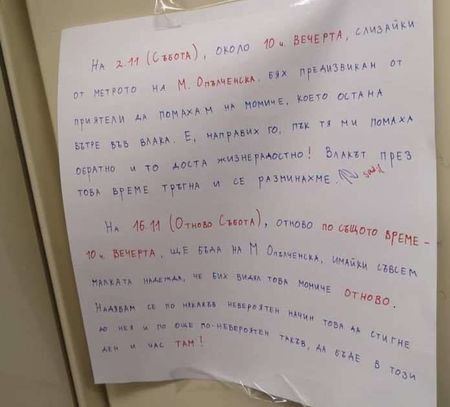 На 2.11 (Събота), около 10 ч. вечерта, слизайки
от метрото на М. Опълченска. Бях предизвикан от
приятели да помахам на момиче, което остана
вътре във влака. Е, направих го, пък тя ми помаха
обратно и то доста жизнерадостно! Влакът през
това време тръгна и се разминахме. sad
На 16.11 (Отново Събота), отново по същото време -
10 ч. вечерта, ще бъда на М Опълченска, имайки съвсем
малката надежда, че бих видял това момиче отново.
Надявам се по някакъв невероятен начин това да стигне
до нея и по още по-невероятен такъв, да бъде в този
ден и час там!